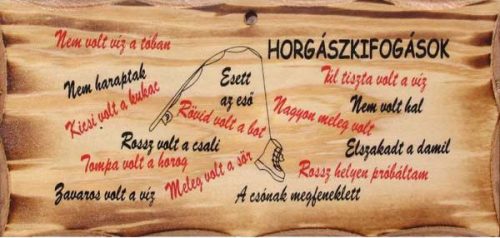 HORGÁSZKIFOGÁSOK
Nem volt víz a tóban
Nem haraptak
Kicsi volt a kukac
Esett
az eső
Rövid volt a bot
Túl tiszta volt a víz
Nem volt hal
Nagyon meleg volt
Rossz volt a csali
Tompa volt a horog
Zavaros volt a víz
Meleg volt a sör
Elszakadt a damil
Rossz helyen próbáltam
A csónak megfeneklett